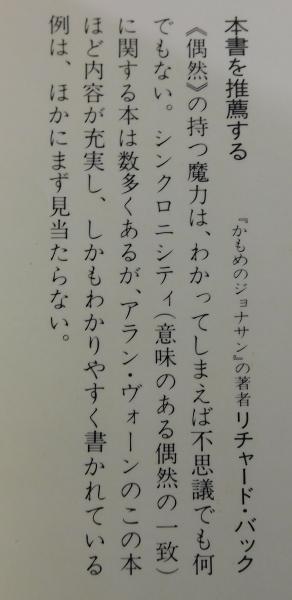 本書を推薦する
『かもめのジョナサン』の著者リチャード・バック
《偶然》の持つ魔力は、わかってしまえば不思議でも何
でもない。シンクロニシティ(意味のある偶然の一致)
に関する本は数多くあるが、アラン・ヴォーンのこの本
ほど内容が充実し、しかもわかりやすく書かれている
例は、ほかにまず見当たらない。